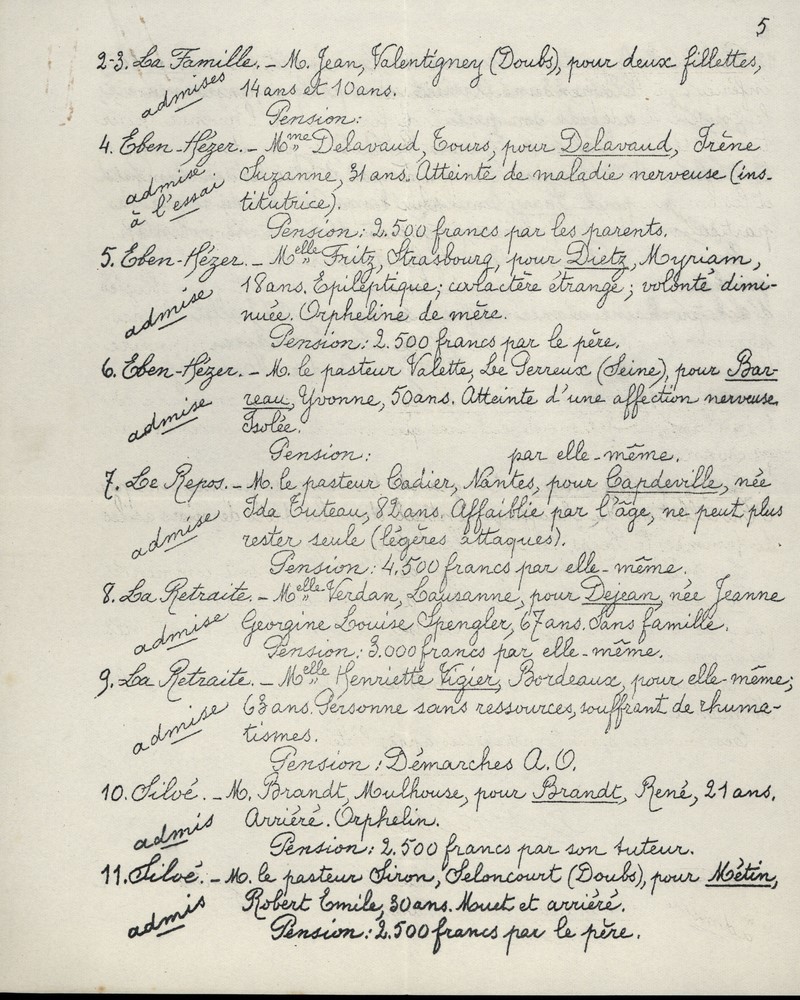 5
2-3. La Famille. - M. Jean, Valentigney (Doubs), pour deux fillettes,
admises
14 ans et 10 ans.
Pension:
4. Eben-Hézer. - Mme Delavaud, Tours, pour Delavaud, Irène
admise
à l'essai
Suzanne, 31 ans. Atteinte de maladie nerveuse (ins-
titutrice).
Pension: 2.500 francs par les parents.
5. Eben-Hézer. - Melle Fritz, Strasbourg, pour Dietz, Myriam,
admise
18 ans. Epileptique; caractère étrange; volonté dimi-
nuée. Orpheline de mère.
Pension: 2.500 francs par le père.
6. Eben-Hézer. - M. le pasteur Valette, Le Perreux (Seine), pour Bar-
admise
reau, Yvonne, 50 ans. Atteinte d'une affection nerveuse.
Isolée.
Pension: par elle-même.
7. Le Repos. - M. le pasteur Cadier, Nantes, pour Capdeville, née
admise
Ida Tuteau, 82 ans. Affaiblie par l'âge, ne peut plus
rester seule (légères attaques).
Pension: 4.500 francs par elle-même.
8. La Retraite. - Melle Verdan, Lausanne, pour Dejean, née Jeanne
admise
Georgine Louise Spengler, 67 ans. Sans famille.
Pension: 3.000 francs par elle-même.
9. La Retraite. - Melle Henriette Vigier, Bordeaux, pour elle-même;
admise
63 ans. Personne sans ressources, souffrant de rhuma-
tismes.
Pension: Démarches A.O.
10. Siloé. - M. Brandt, Mulhouse, pour Brandt, René, 21 ans.
admis
Arriéré. Orphelin.
Pension: 2.500 francs par son tuteur.
11. Siloé. - M. le pasteur Siron, Seloncourt (Doubs), pour Métin,
admis
Robert Emile, 30 ans. Muet et arriéré.
Pension: 2.500 francs par le père.